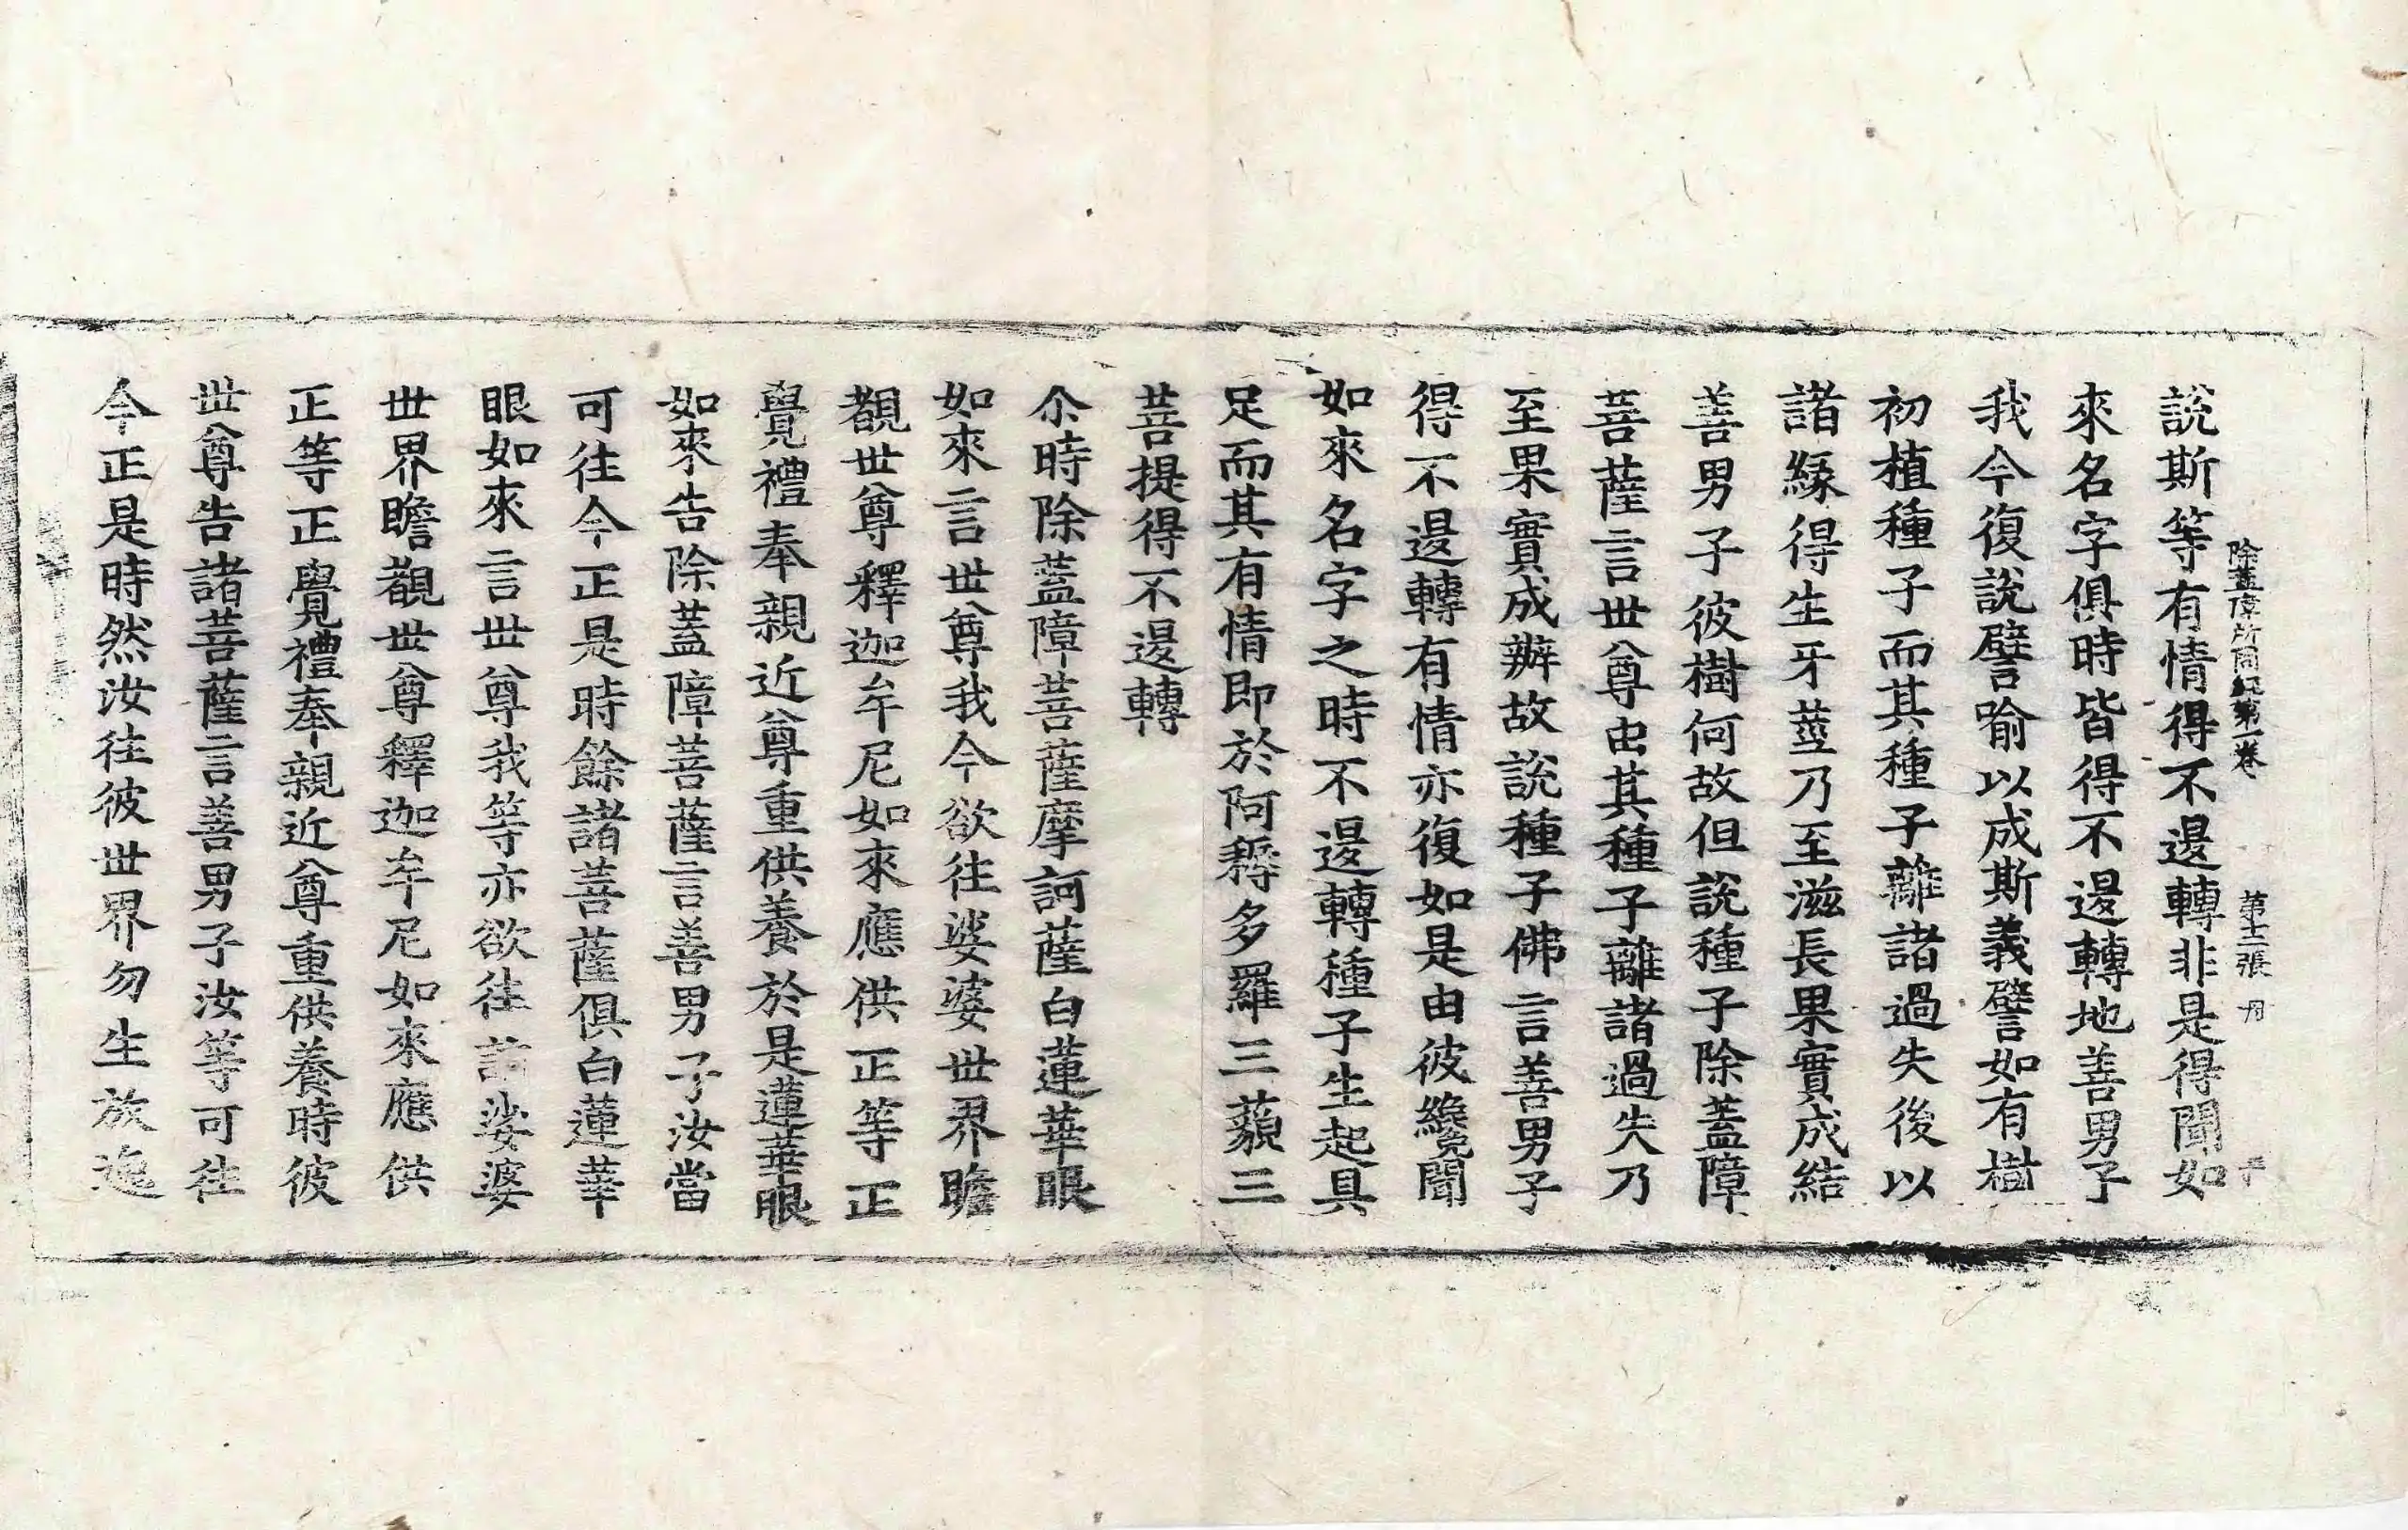 除蓋障所問經第一卷 第十二張 用
說斯等有情得不退轉非是得聞如
來名字俱時皆得不退轉地善男子
我今復說譬喻以成斯義譬如有樹
初植種子而其種子離諸過失後以
諸緣得生牙莖乃至滋長果實成結
善男子彼樹何故但說種子除蓋障
菩薩言世尊由其種子離諸過失乃
至果實成辦故說種子佛言善男子
得不退轉有情亦復如是由彼纔聞
如來名字之時不退轉種子生起具
足而其有情即於阿耨多羅三藐三
菩提得不退轉
尒時除蓋障菩薩摩訶薩白蓮華眼
如來言世尊我今欲往娑婆世界瞻
觀世尊釋迦牟尼如來應供正等正
覺禮奉親近尊重供養於是蓮華眼
如來告除蓋障菩薩言善男子汝當
可往今正是時餘諸菩薩俱白蓮華
眼如來言世尊我等亦欲往詣娑婆
世界瞻觀世尊釋迦牟尼如來應供
正等正覺禮奉親近尊重供養時彼
世尊告諸菩薩言善男子汝等可往
今正是時然汝往彼世界勿生放逸